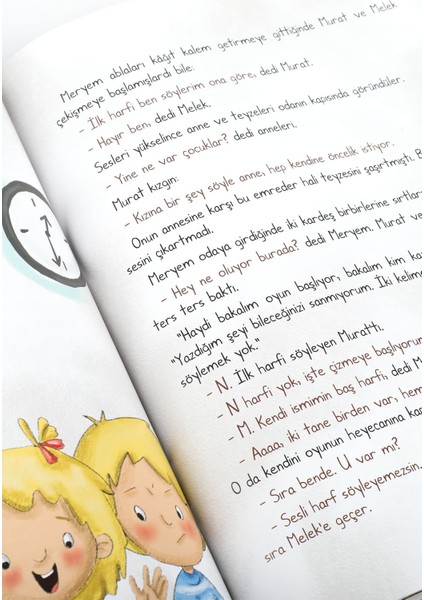 Meryem ablaları kâğıt kalem getirmeye gittiğinde Murat ve Melek
çekişmeye başlamışlardı bile:
- İlk harfi ben söylerim ona göre, dedi Murat.
- Hayır ben, dedi Melek.
Sesleri yükselince anne ve teyzeleri odanın kapısında göründüler.
- Yine ne var çocuklar? dedi anneleri.
Murat kızgın:
- Kızına bir şey söyle anne, hep kendine öncelik istiyor.
Onun annesine karşı bu emreder hali teyzesini şaşırtmıştı.
sesini çıkartmadı.
Meryem odaya girdiğinde iki kardeş birbirlerine
- Hey ne oluyor burada? dedi Meryem. Murat
ters ters baktı.
"Haydi bakalım oyun başlıyor, bakalım kim
"Yazdığım şeyi bileceğinizi sanmıyorum. İki
söylemek yok."
- N. İlk harfi söyleyen Murattı.
- N harfi yok, işte çizmeye
- M. Kendi ismimin baş harfi, dedi
- Aaaa, iki tane birden var,
O da kendini oyunun heyecanına
- Sıra bende. U var mı?
- Sesli harf söyleyemezsin,
sıra Melek'e geçer.